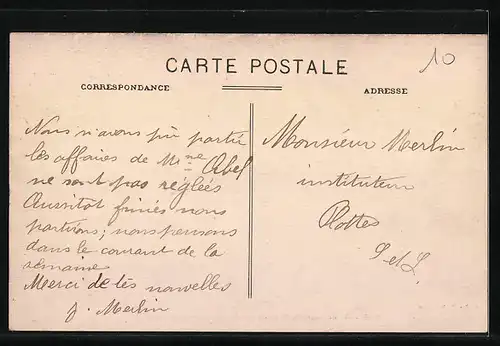 10
CARTE POSTALE
CORRESPONDANCE
ADRESSE
Nous n'avons pu partir
les affaires de Mme Abel
ne sont pas réglées
Aussitot finies nous
partirons; nous pensons
dans le courant de la
semaine
Merci de tes nouvelles
J. Merlin
Monsieur Merlin
instituteur
Plottes
S et L.